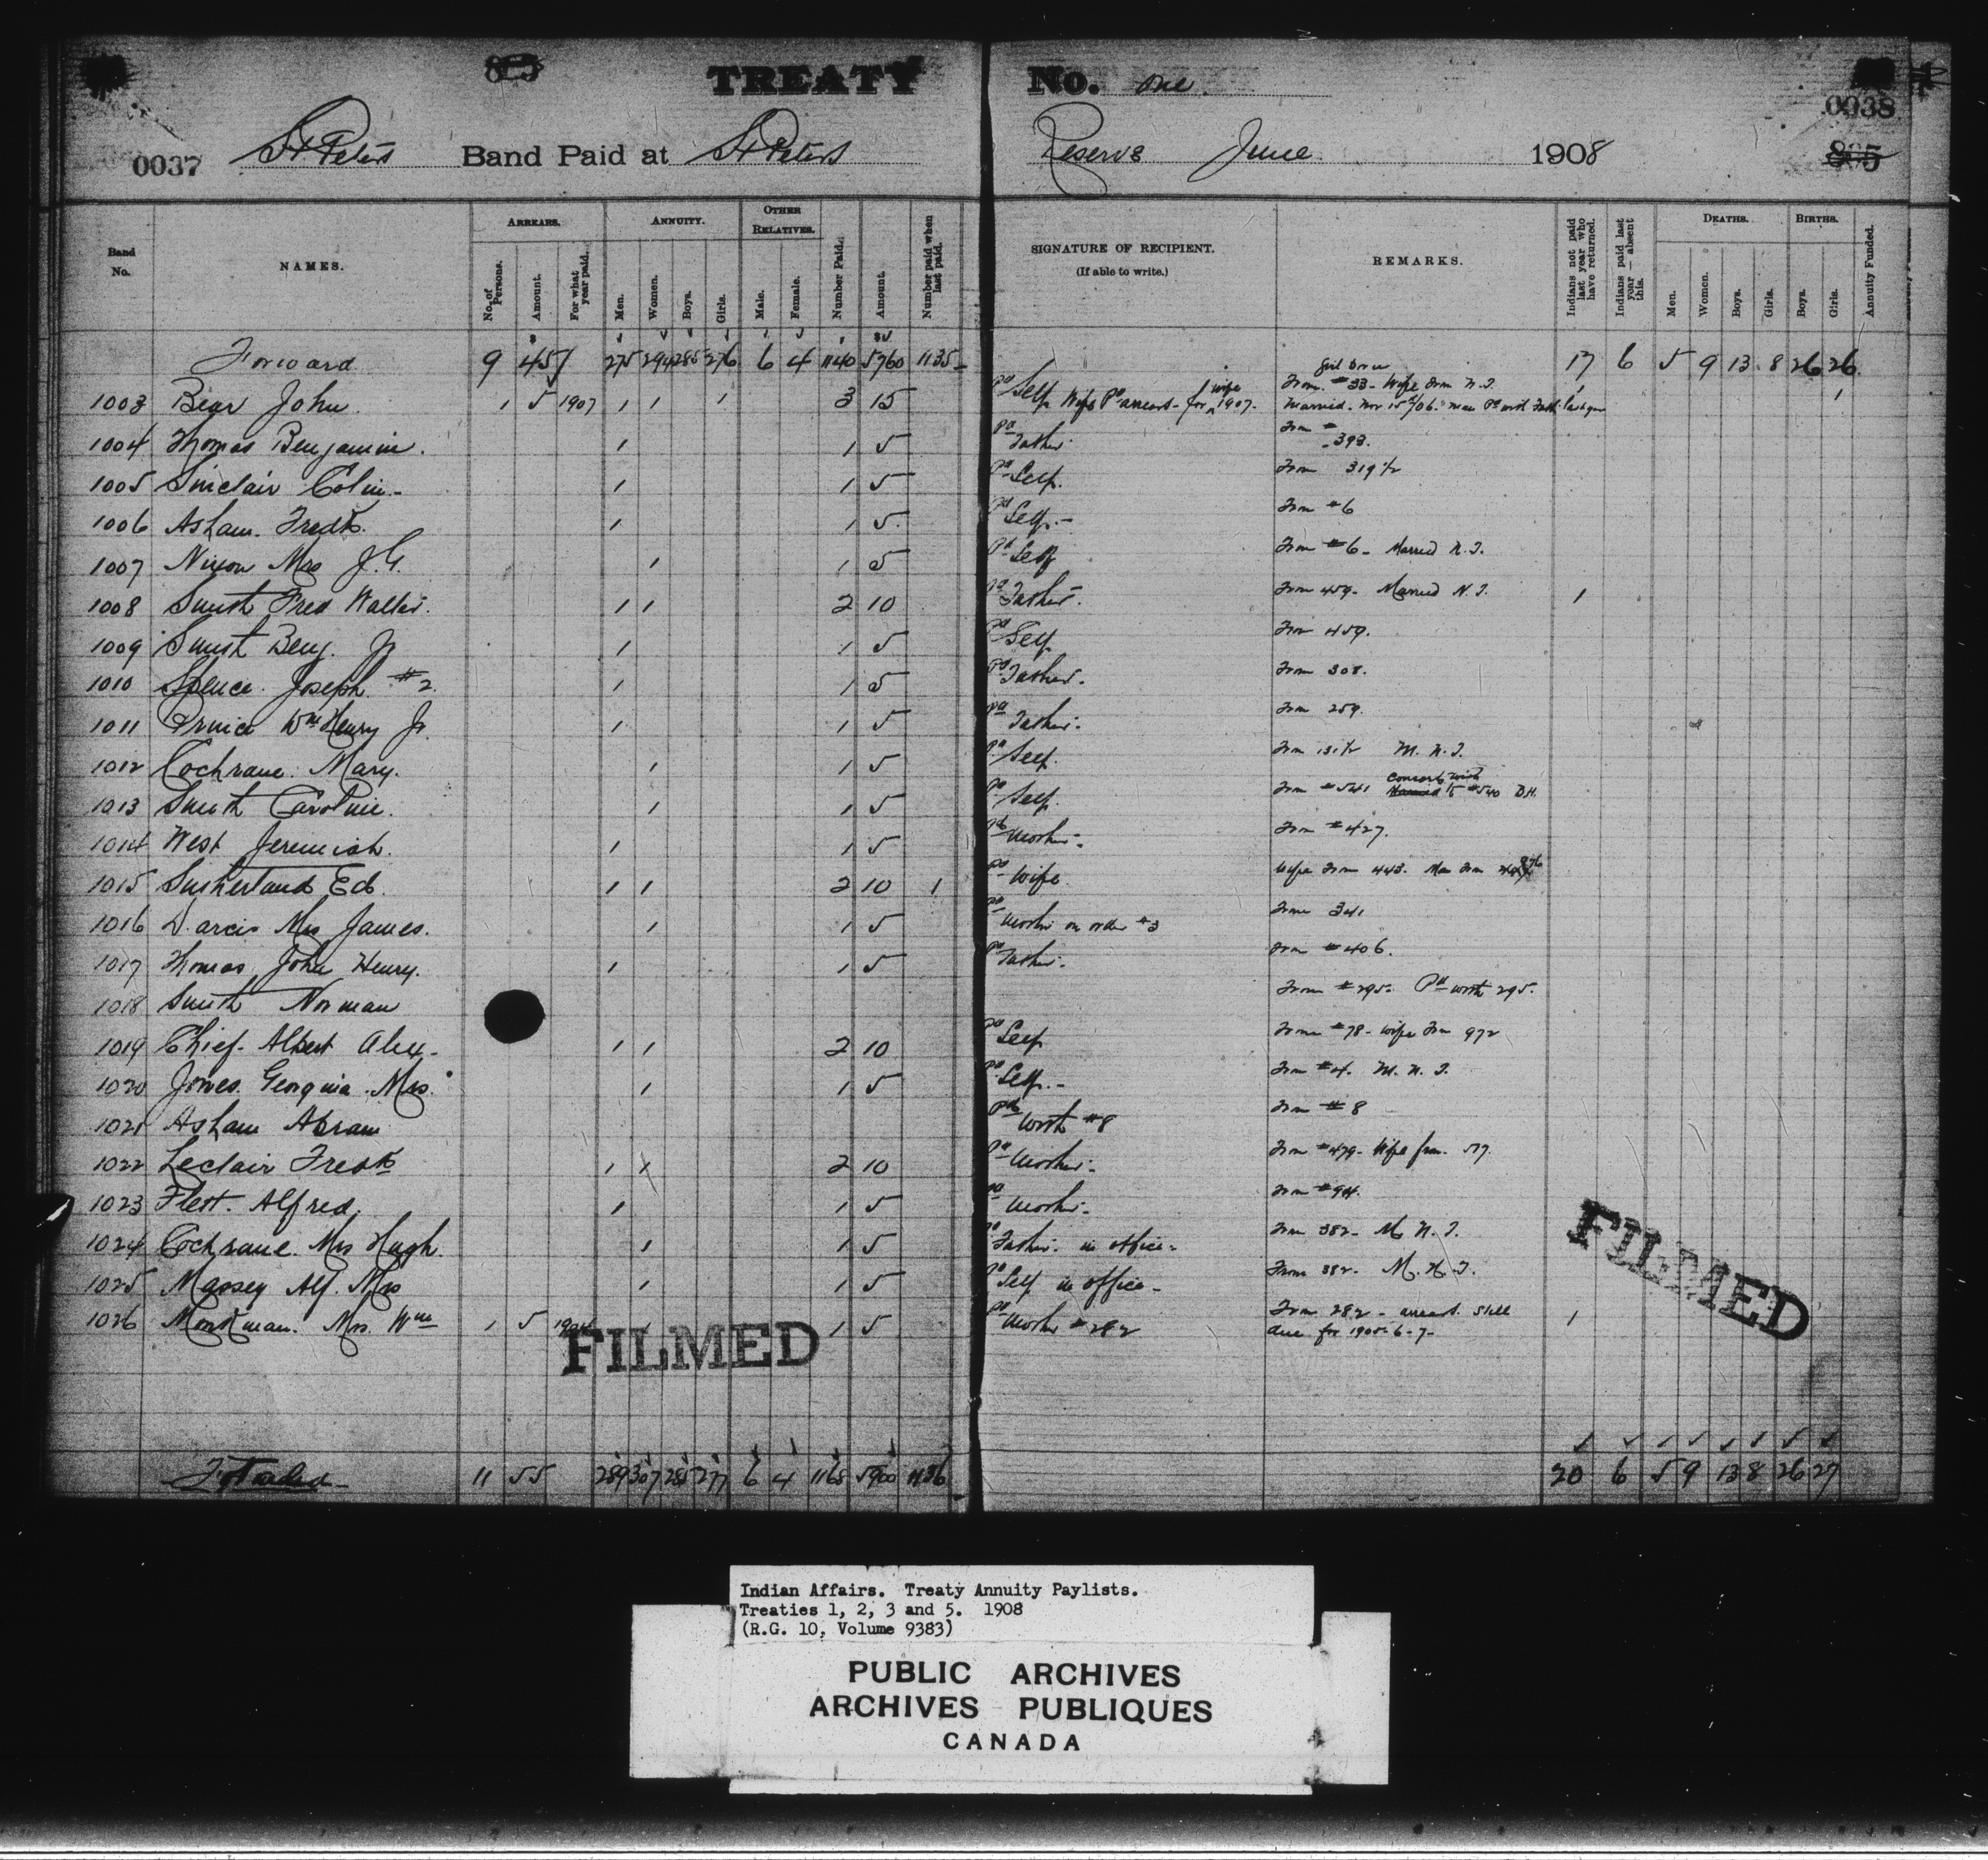 TREATY No. One
0037 St Peters Band Paid at St Peters Reserve June 1908 0038
Band No. NAMES. ARREARS. No. of Persons. Amount. For what year paid. ANNUITY. Men. Women. Boys. Girls. OTHER RELATIVES. Male. Female. Number Paid. Amount. Number paid when last paid. SIGNATURE OF RECIPIENT. (If able to write.) REMARKS. Indians not paid last year who have returned. Indians paid last year — absent this. DEATHS. Men. Women. Boys. Girls. BIRTHS. Boys. Girls. Annuity Funded.
Forward 9 45 275 294 285 276 6 4 1140 5760 1135 17 6 5 9 13 8 26 26
Girl Born
1003 Bear John. 1 5 1907 1 1 1 3 15 Pd Self Wife Pd arrears for wife 1907. From #33 - Wife from N.T. 1 1
Married. Nov 15th/06.
1004 Thomas Benjamin. 1 1 5 Pd Father. From # 393.
1005 Sinclair Colin. 1 1 5 Pd Self. From 319 1/2
1006 Asham. Fredk. 1 1 5 Pd Self. From #6
1007 Nixon Mrs J.G. 1 1 5 Pd Self From #6 - Married N.T.
1008 Smith Fred Walter. 1 1 2 10 Pd Father. From 459. Married N.T. 1
1009 Smith Benj. Jr 1 1 5 Pd Self From 459.
1010 Spence. Joseph #2. 1 1 5 Pd Father. From 308.
1011 Prince Wm Henry Jr. 1 1 5 Pd Father. From 259.
1012 Cochrane. Mary. 1 1 5 Pd Self. From 131 1/2 M. N. T.
1013 Smith Caroline. 1 1 5 Pd Self. From #541 Consorts with Married to #540 B.H.
1014 West Jeremiah. 1 1 5 Pd Mother. From #427.
1015 Sutherland Ed. 1 1 2 10 1 Pd Wife. Wife From 443. Man From 976
1016 Darcis Mrs James. 1 1 5 Pd Mother on order #3 From 341
1017 Thomas, John Henry. 1 1 5 Pd Father. From #406.
1018 Smith Norman From #295. Pd with 295.
1019 Chief. Albert Alex. 1 1 2 10 Pd Self From #78 - Wife From 972
1020 Jones. Georgina. Mrs. 1 1 5 Pd Self. From #4. M. N. T.
1021 Asham Abram Pd with #8 From #8
1022 Leclair Fredk 1 1 2 10 Pd Mother. From #479 - Wife from 517.
1023 Flett. Alfred. 1 1 5 Pd Mother. From #94.
1024 Cochrane. Mrs Hugh. 1 1 5 Pd Father. in office. From 382 - M. N. T.
1025 Massey Alf. Mrs 1 1 5 Pd Self in office. From 382 - M. N. T.
1026 Monkman. Mrs. Wm 1 5 1904 1 1 5 Pd Mother #282 From 282 - arrears still 1
due for 1905-6-7-
FILMED
FILMED
Totaled 11 55 289 307 285 277 6 4 1168 5900 1136 20 6 5 9 13 8 26 27
Indian Affairs. Treaty Annuity Paylists.
Treaties 1, 2, 3 and 5. 1908
(R.G. 10, Volume 9383)
PUBLIC ARCHIVES
ARCHIVES PUBLIQUES
CANADA